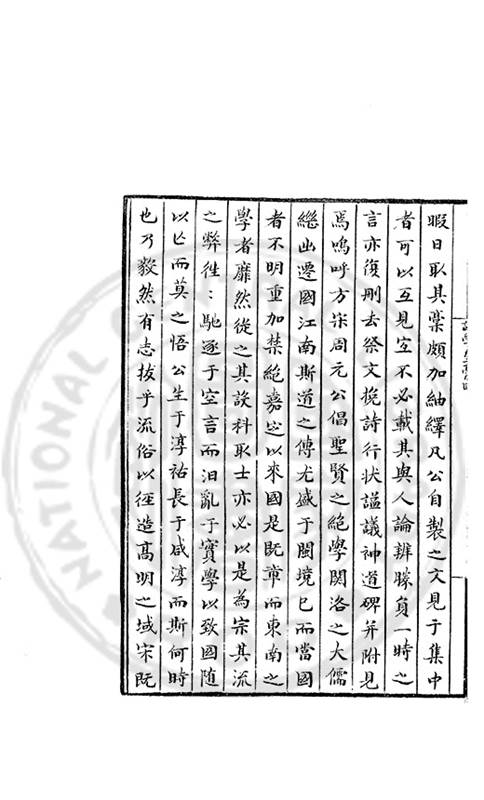 暇日取其稾頗加紬繹凡公自製之文見于集中
者可以互見宜不必載其與人論辨勝負一時之
言亦復刪去祭文挽詩行狀謚議神道碑并附見
焉嗚呼方宋周元公倡聖賢之絶學関洛之大儒
繼出遷國江南斯道之傳尤盛于閩境已而當國
者不明重加禁絶嘉定以來國是既章而東南之
學者靡然從之其設科取士亦必以是為宗其流
之弊徃:馳逐于空言而汩亂于實學以致國随
以亡而莫之悟公生于淳祐長于咸淳而斯何時
也乃毅然有志拔乎流俗以徑造髙明之域宋既
NATIONAL